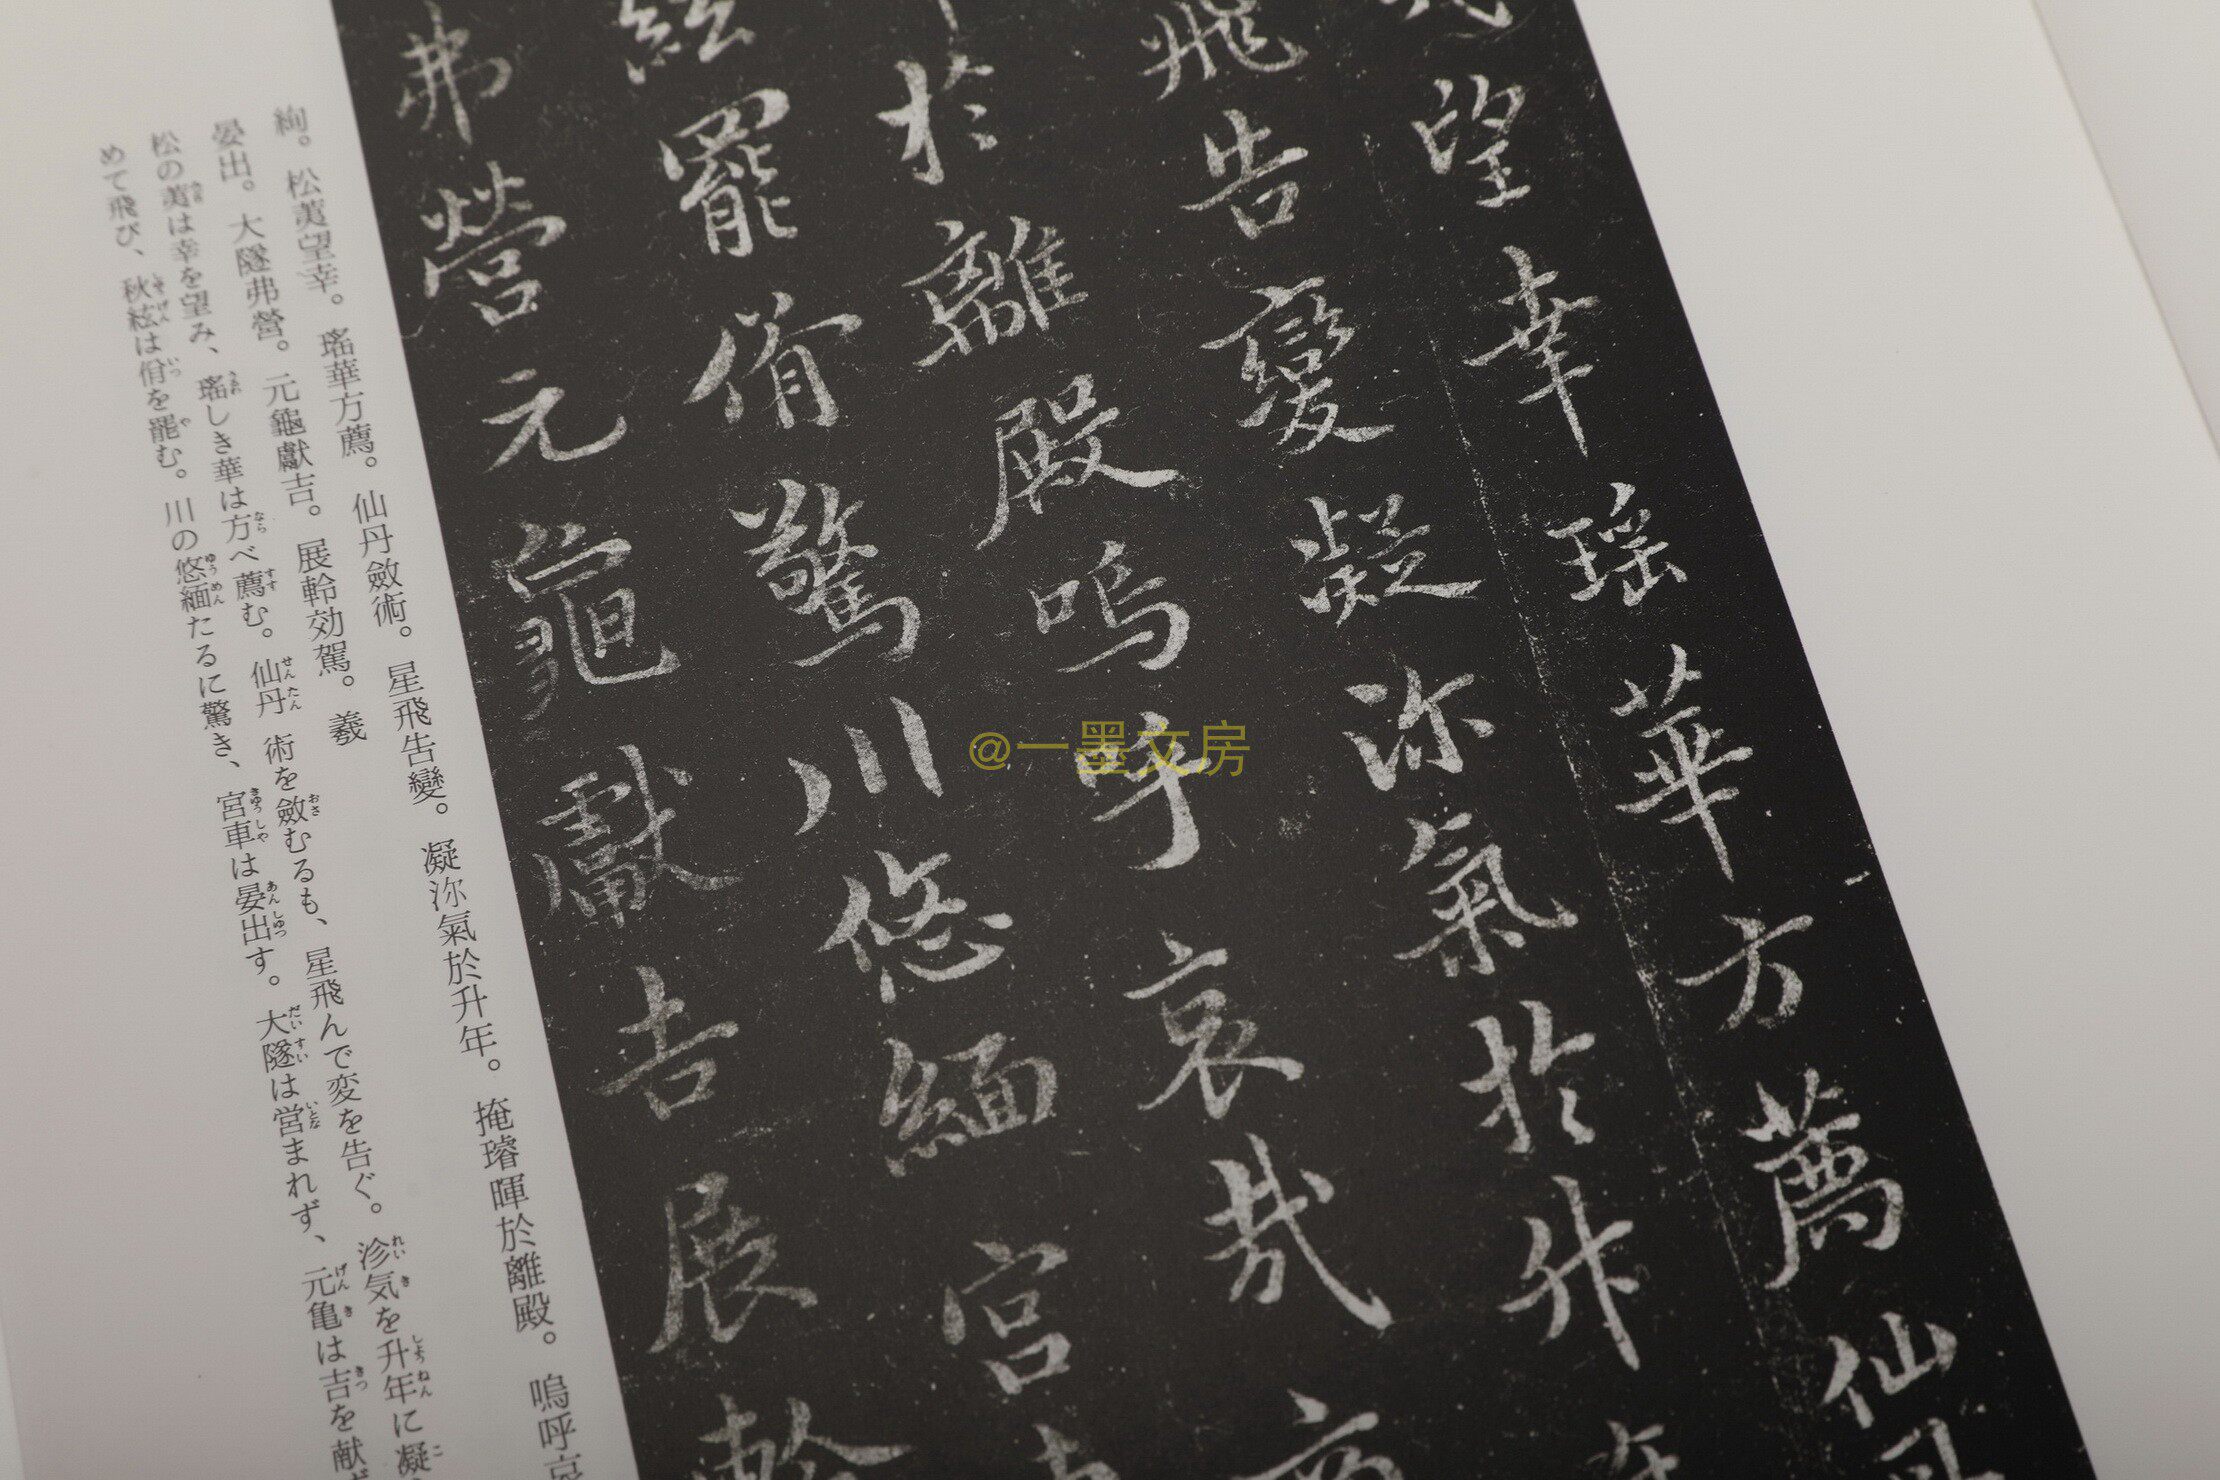 望幸瑤華方薦仙
飛告變凝沵氣於升
於離殿嗚呼哀哉
絃罷佾驚川悠緬宮
弗營元龜獻吉展軨
絢。松荑望幸。瑤華方薦。仙丹斂術。星飛告變。凝沵氣於升年。掩璿暉於離殿。嗚呼哀
晏出。大隧弗營。元龜獻吉。展軨効駕。羲
松の荑は幸を望み、瑤しき華は方べ薦む。仙丹術を斂むるも、星飛んで変を告ぐ。沴気を升年に凝
めて飛び、秋絃は佾を罷む。川の悠緬たるに驚き、宮車は晏出す。大隧は営まれず、元亀は吉を献
@一墨文房